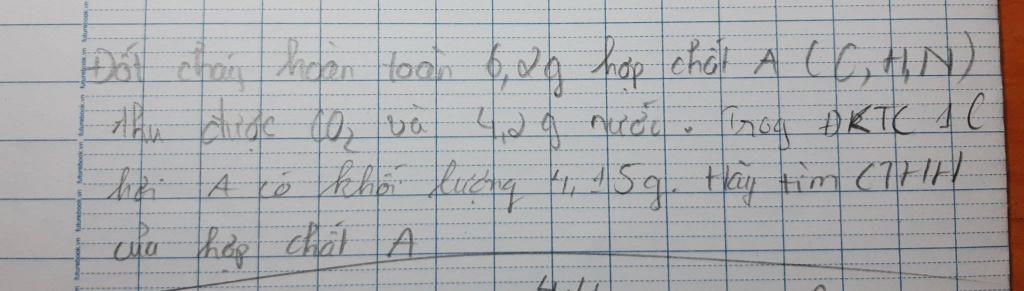 Đốt cháy hoàn toàn 6,2g hợp chất A (C, H, N)
thu được CO2 và 4,2g nước. Trog ĐKTC 1l
hơi A có khối lượng 4,15g. Hãy tìm CTHH
của hợp chất A